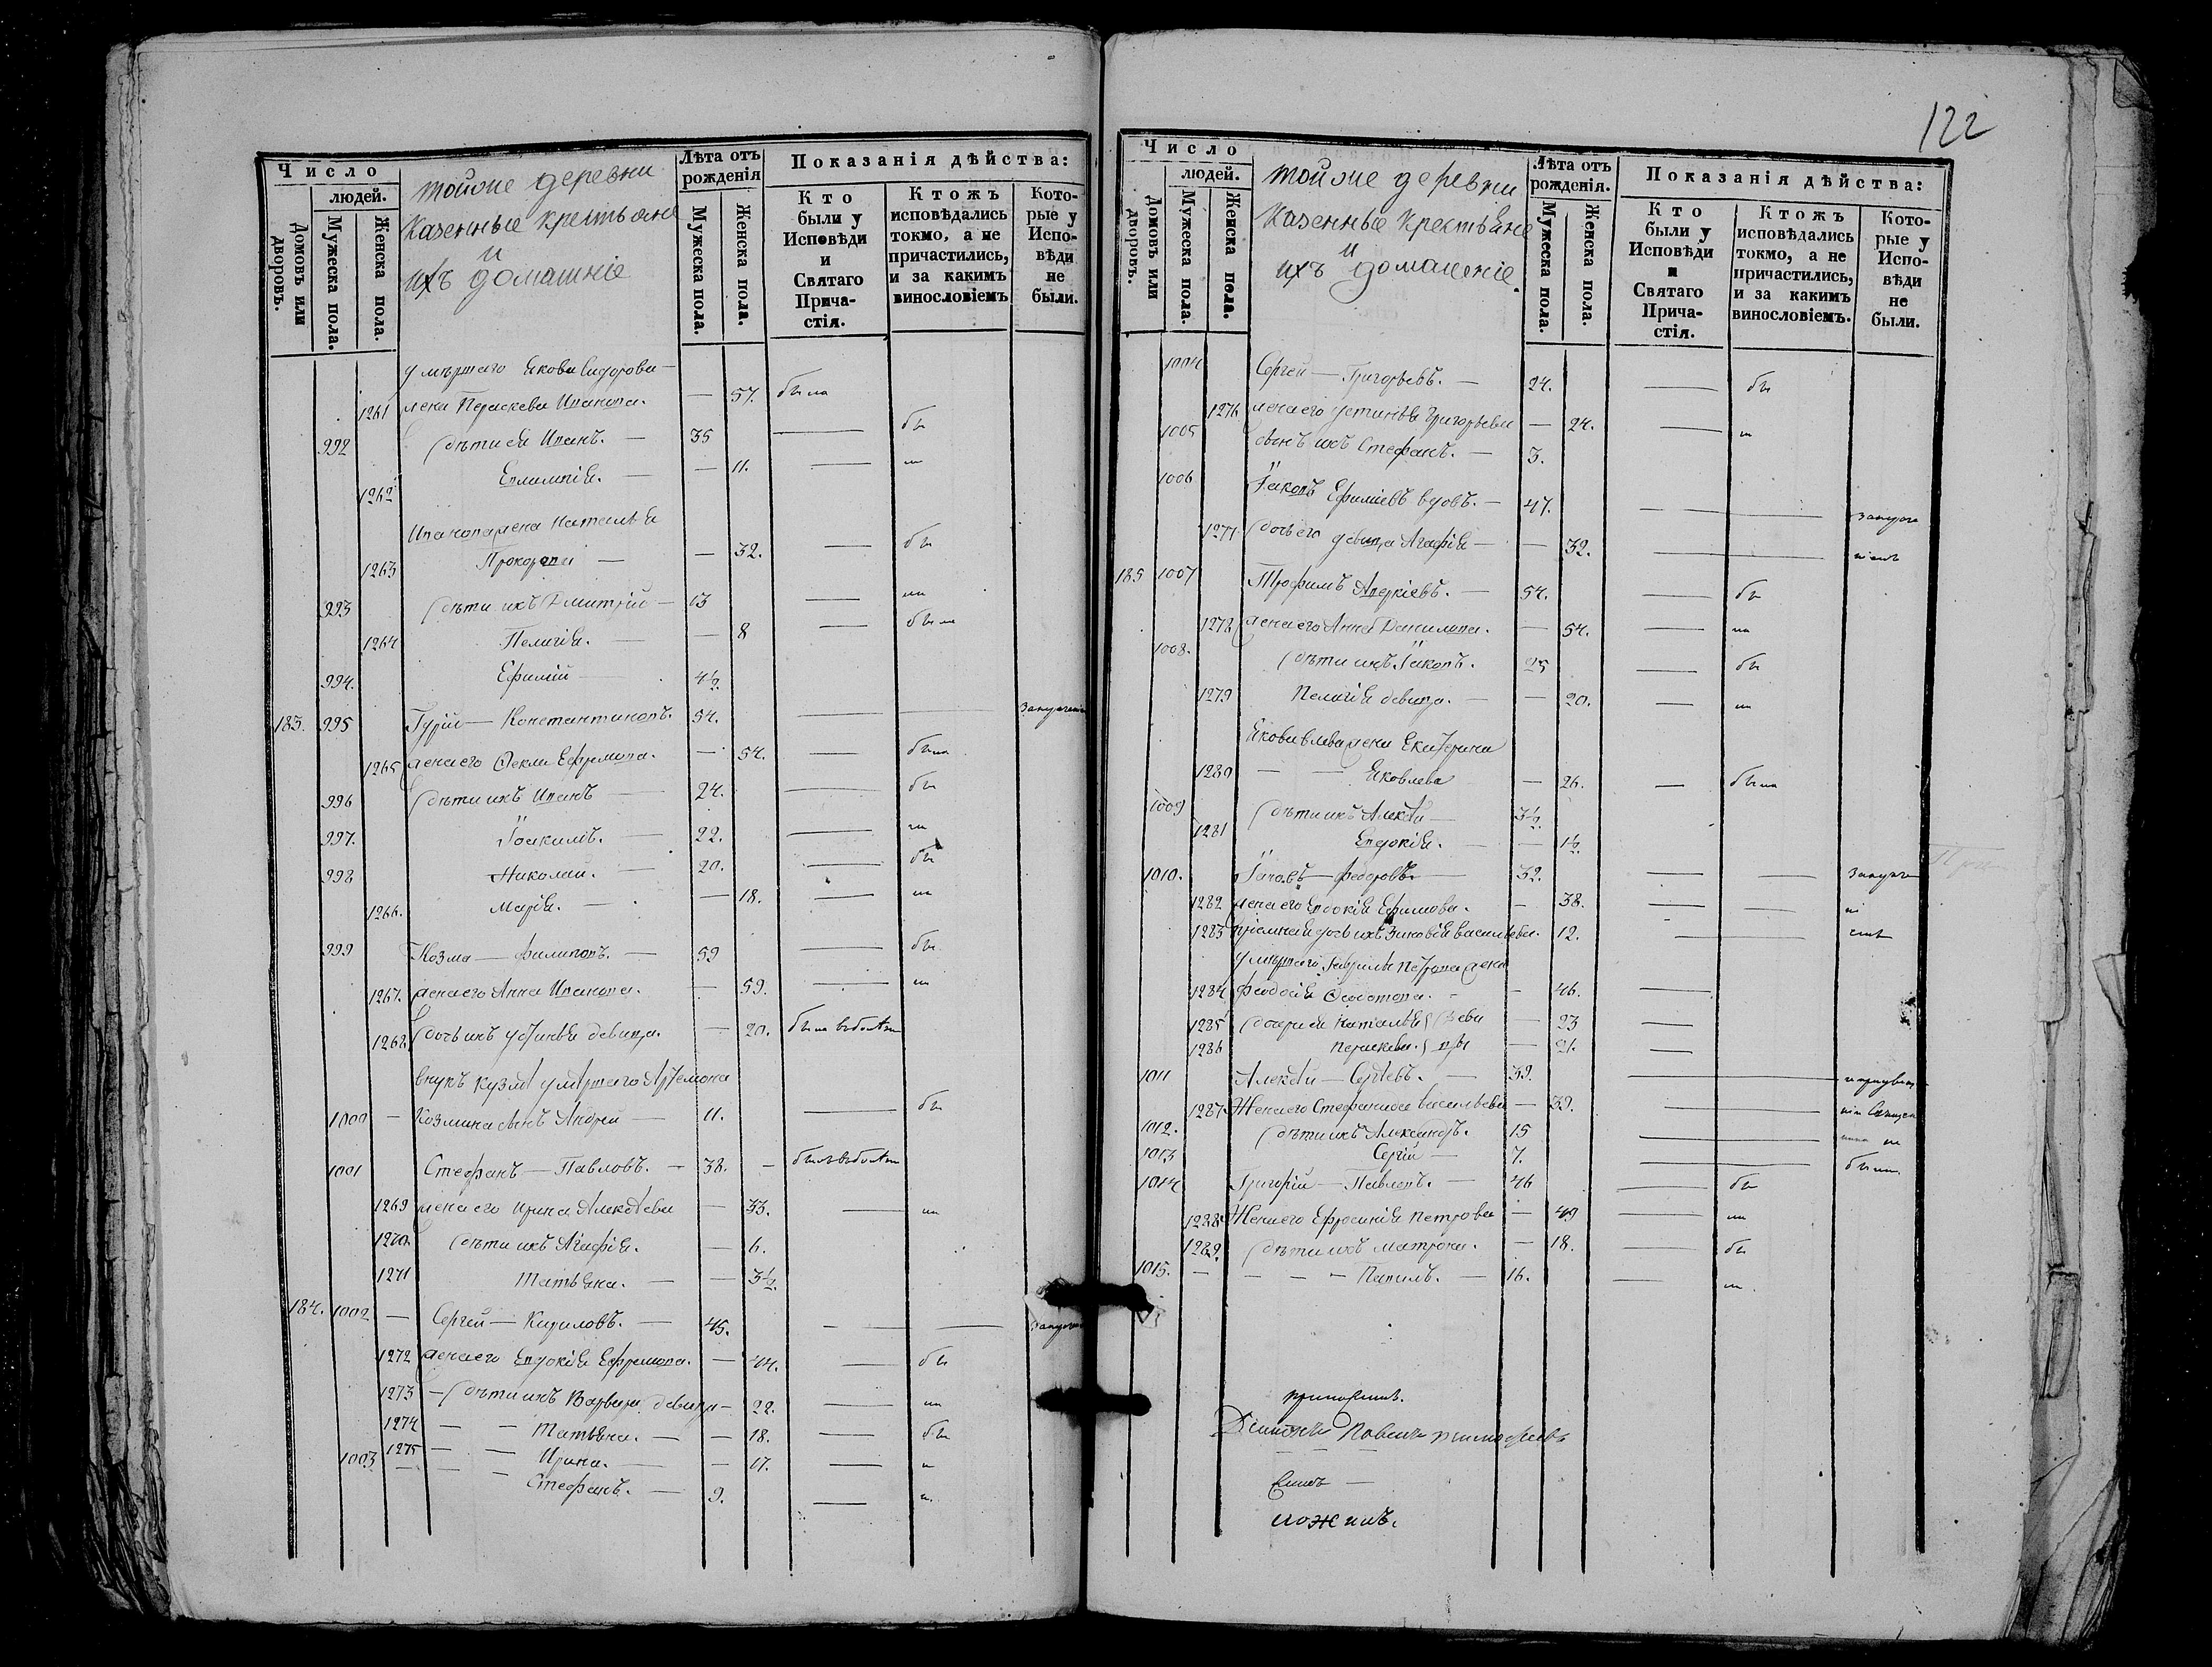 Число
людей.
Домовъ или дворовъ.
Мужеска пола.
Женска пола.
тойже деревни
Казенные крестьяне
и
ихъ домашніе
Лѣта отъ рожденія
Мужеска пола.
Женска пола.
Показанія дѣйства:
Кто были у Исповѣди и Святаго Прича-стія.
Ктожъ исповѣдались токмо, а не причастились, и за какимъ винословіемъ
Кото-рые у Испо-вѣди не были.
умершаго Якова Сидорова
1261 жена Параскева Иванова. — 57. была
992 дѣти ея Иванъ. — 35 — бы
1262 Евлампія. — — 11. — ли
Иванова жена Наталья
1263 Прокофьева — — 32. — бы
993 дѣти ихъ Дмитрій — 13 — ли
1264 Пелагія. — — 8 — были
994. Ефимій — 4½
183. 995 Гурій — Константиновъ. 54. — —
1265 жена его Ѳекла Ефремова. — 54. — была
996 дѣти ихъ Иванъ — 24. — бы
997. Іоакимъ. — 22. — ли
998 Николай. — 20. — бы
1266. Марія. — — 18. — ли
999 Козма — Филиповъ. — 59 — бы
1267. жена его Анна Иванова. — 59. — ли
1268. дочь ихъ Устинья девица. — 20. была
внукъ Кузмы умершаго Артемона
1000 — Козмина сынъ Андрей — 11. — бы
1001 Стефанъ — Павловъ. — 38. —
1269 жена его Ирина Алексѣева — 33. — ли
1270. дѣти ихъ Агафія. — 6.
1271 Татьяна. — — 3½
184. 1002 — Сергей — Кириловъ. — 45. — —
1272 жена его Евдокія Ефремова. — 44. — бы
1273 — дѣти ихъ Варвара девица — 22. — ли
1274 — — Татьяна. — — 18. — бы
1275 — — Ирина. — — 17. —
1003 — — — Стефанъ. — 9. —
122
Число
людей.
Домовъ или дворовъ.
Мужеска пола.
Женска пола.
тойже деревни
Казенные крестьяне
и
ихъ домашніе.
Лѣта отъ рожденія.
Мужеска пола.
Женска пола.
Показанія дѣйства:
Кто были у Исповѣди и Святаго Прича-стія.
Ктожъ исповѣдались токмо, а не причастились, и за какимъ винословіемъ.
Кото-рые у Испо-вѣди не были.
1004 Сергей — Григорьевъ. — 24. — бы
1276 жена его Устинья Григорьева — 24. — ли
1005 сынъ ихъ Стефанъ. — 3.
1006 Іаковъ Ефимьевъ вдовъ. — 47. — —
1277 дочь его девица Агафія — — 32. — —
185 1007 Трофимъ Аверкіевъ. — 54. — бы
1278 жена его Анна Данилова. — 54. — ли
1008. дѣти ихъ Іаковъ. 25 — бы
1279 Пелагія девица. — — 20. — ли
Яковлева жена Екатерина
1280 — — Яковлева — 26. — была
1009 дѣти ихъ Алексѣй — 3½
1281 Евдокія. — — 1½
1010. Іаковъ — Федоровъ. — 32. — —
1282 жена его Евдокія Ефимова. — 38. — —
1283 пріемная дочь ихъ Зиновія Васильева. 12. — —
умершаго Гаврилы Петрова жена
1284 Феодосія Ѳедотова. — — 46. —
1285 дочери ея Наталья — 23
1286 Параскева. — 21. —
1011 Алексѣй — Сергѣевъ. — 39. —
1287 Жена его Стефанида Васильева — 39. —
1012. дѣти ихъ Александръ. 15 —
1013 Сергій — 7. — были.
1014 Григорій — Павловъ. — 46 — бы
1288 Жена его Ефросинія Петрова — 49 — ли
1289. дѣти ихъ Матрона. — 18. — бы
1015. — — — — Павилъ. — 16. — ли